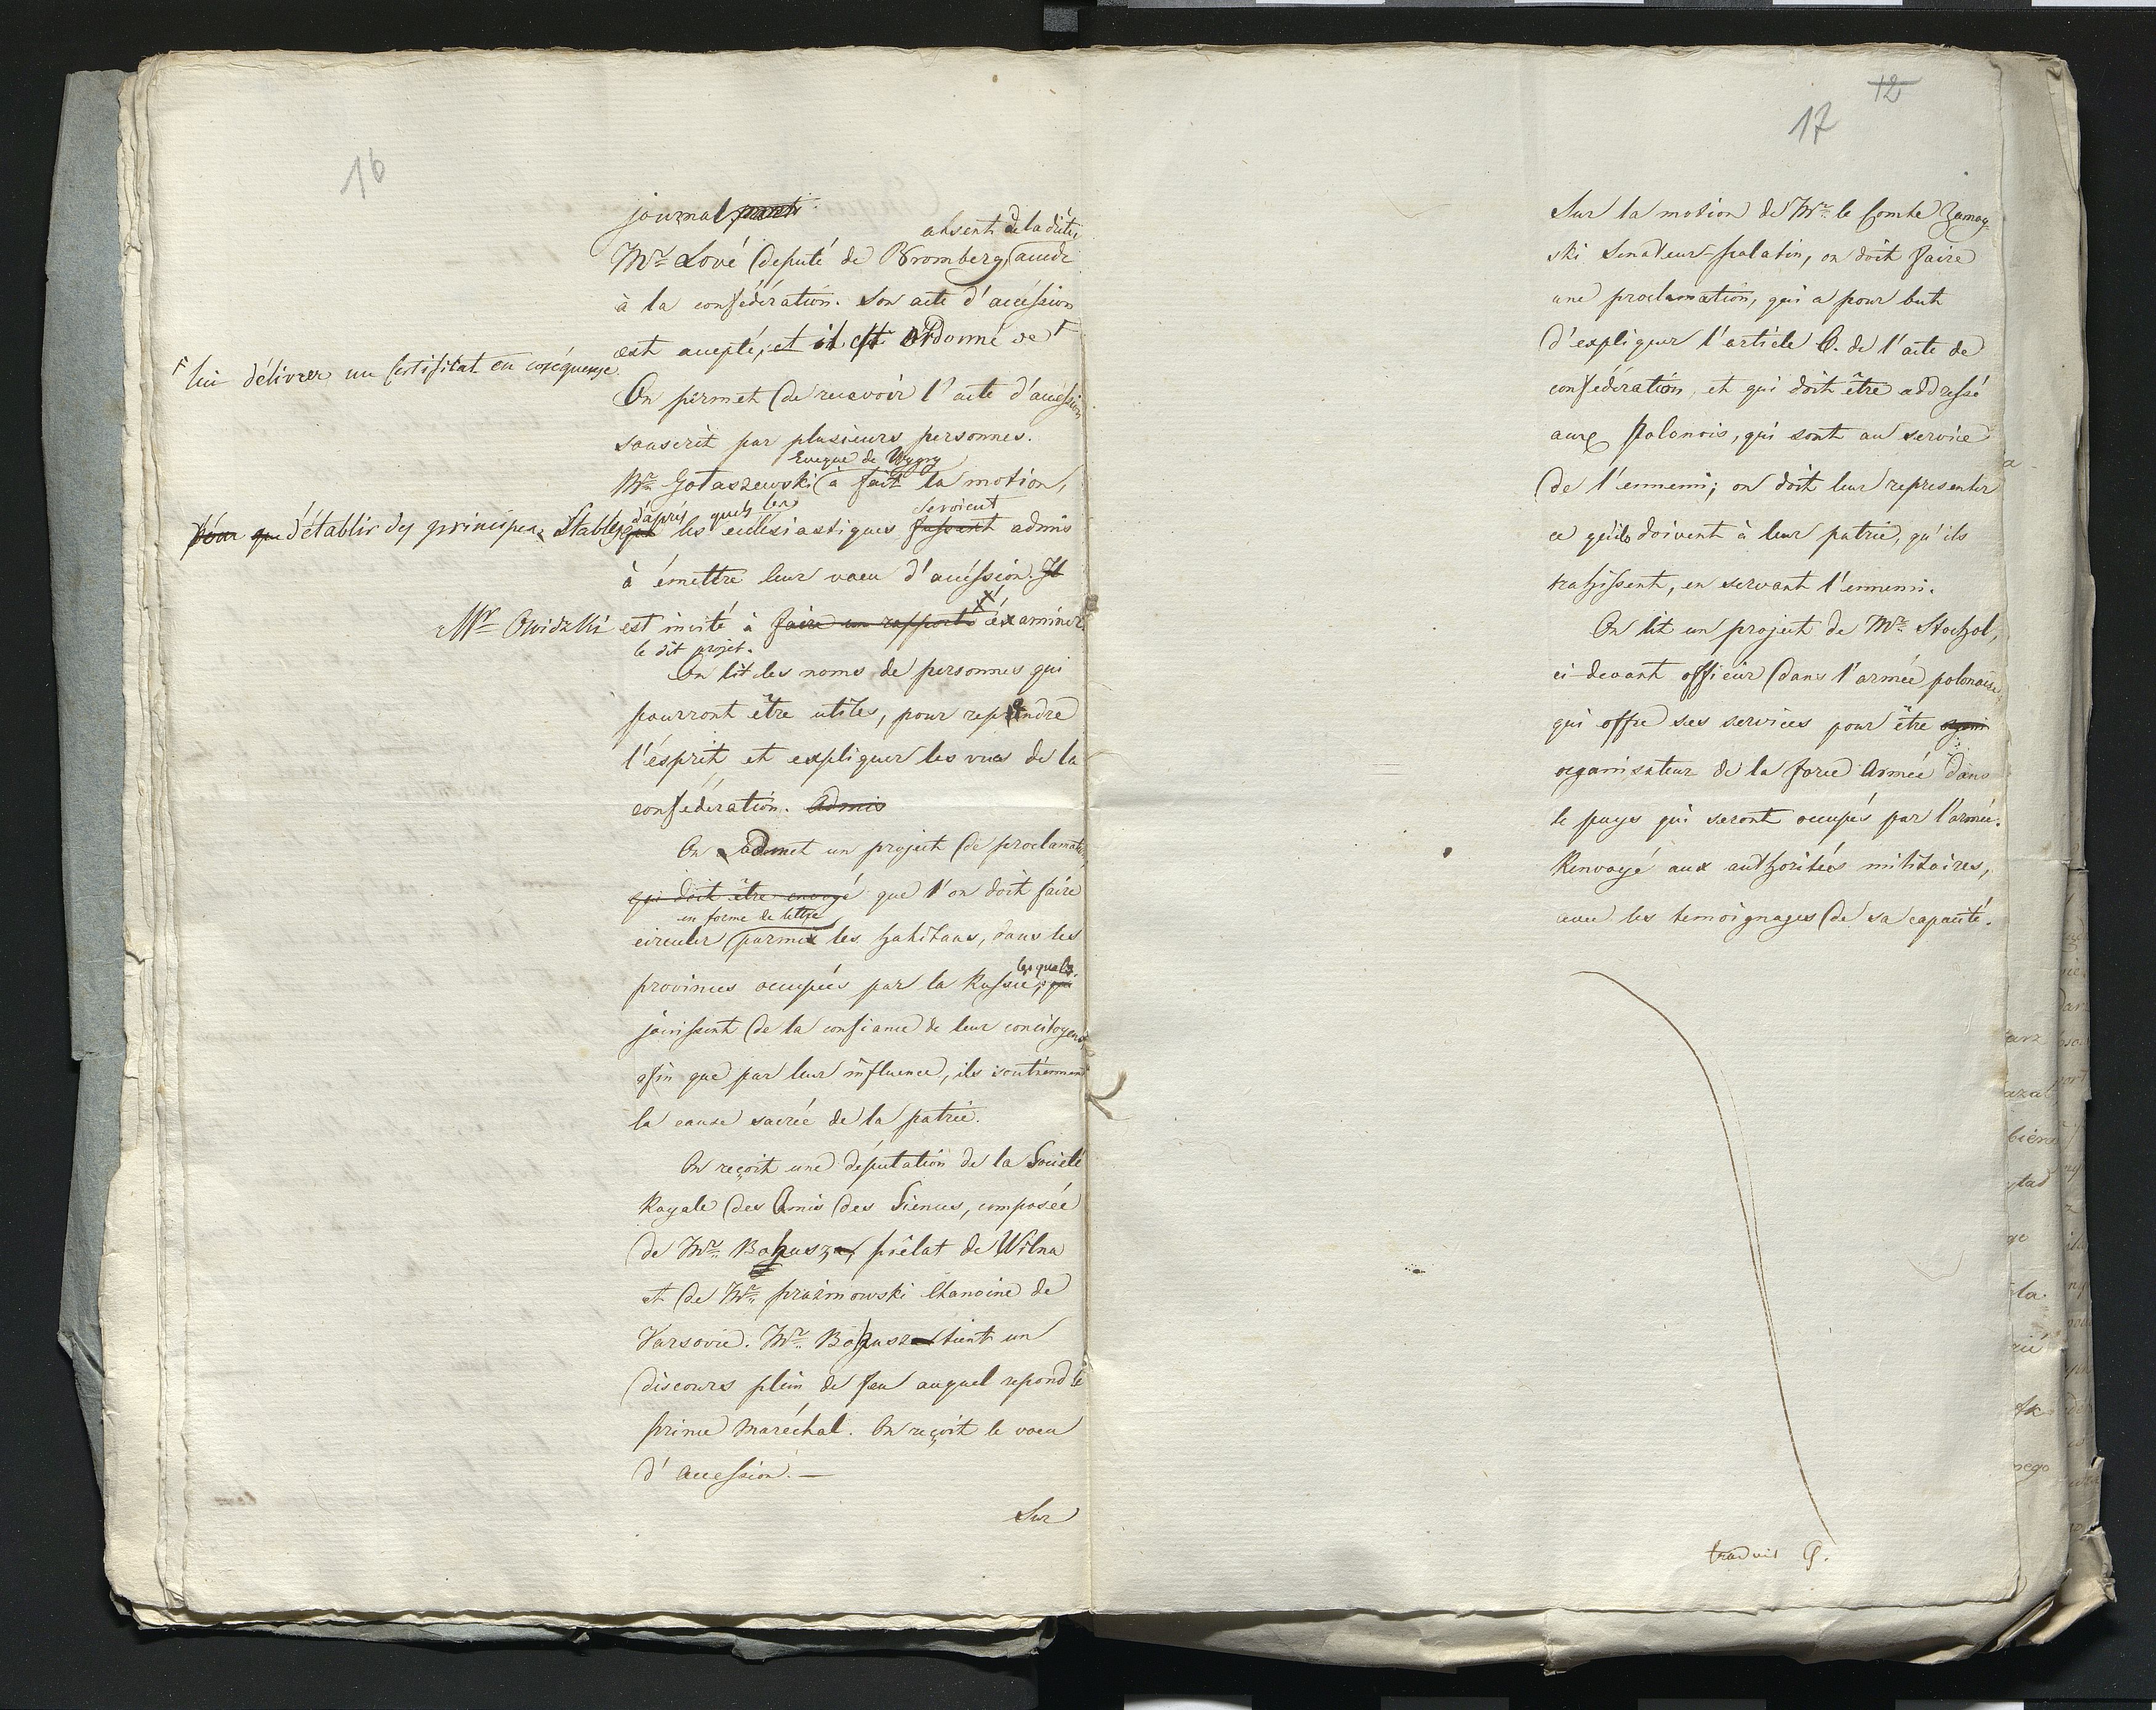 16
journal
absent de la diète
Mr. Lové député de Bromberg, accede
à la confédération. Son acte d'accéssion
est accepté, et il est ordonné de
lui délivrer un certificat en coséquense.
On permet de recevoir l'acte d'accéssion
souscrit par plusieurs personnes.
Eveque de Wygry
Mr. Gołaszewski à fait la motion,
d'après quels les seroient
Pour que d'établir des principes Stables, que les ecclesiastiques fussent admis
à émettre leur voeu d'accéssion. Il
Mr. Gwidzki est invité à faire un rapport éxaminer
le dit projet.
On lit les noms de personnes qui
pourront être utiles, pour reprendre
l'ésprit et expliquer les vues de la
confédération. Admis
On admet un project de proclamation,
qui doit être envoyé que l'on doit faire
en forme de lettre
circuler parmix les habitans, dans les
lesquels
provinces occupées par la Russie, qui
jouissent de la confiance de leur concitoyens,
afin que par leur influence, ils soutiennent
la cause sacrée de la patrie.
On reçoit une députation de la Societé
Royale des Amis des Siences, composée
de Mr. Bohusz, prélat de Wilna
et de Mr. prażmowski Chanoine de
Varsovie. Mr. Bohusz tient un
discours plein de feu auquel repond le
prince Maréchal. On reçoit le voeu
d'accession. —
Sur
12
17
Sur la motion de Mr. le Comte Zamoy-
ski Senateur-palatin, on doit faire
une proclamation, qui a pour but
d'expliquer l'article 6. de l'acte de
confédération, et qui doit être addressé
aux Polonois, qui sont au service
de l'ennemi; on doit leur representer
ce qu'ils doivent à leur patrie, qu'ils
trahissent, en servant l'ennemi.
On lit un project de Mr. Stochol,
ci-devant officier dans l'armée polonaise
qui offre ses services pour être
organisateur de la force Armée dans
le pays qui seront occupés par l'armée.
Renvoyé aux authorités militaires,
avec les temoignages de sa capacité.
traduit G.